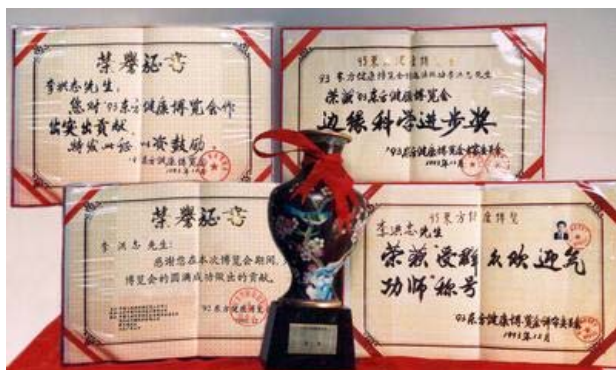 荣誉证书
李洪志先生:
您对'93东方健康博览会作
出突出贡献,
特发此证 以资鼓励。
东方健康博览会
1993年12月
93东方健康博览会
李洪志先生
荣获'93东方健康博览会
边缘科学进步奖
'93东方健康博览会
1993年12月
荣誉证书
李洪志先生:
感谢您在本次博览会期间,
博览会的圆满成功做出的贡献。
'92东方健康博览会
93东方健康博览
李洪志先生
荣获"受群众欢迎气
功师"称号
'93东方健康博览会评审委员会
1993年12月